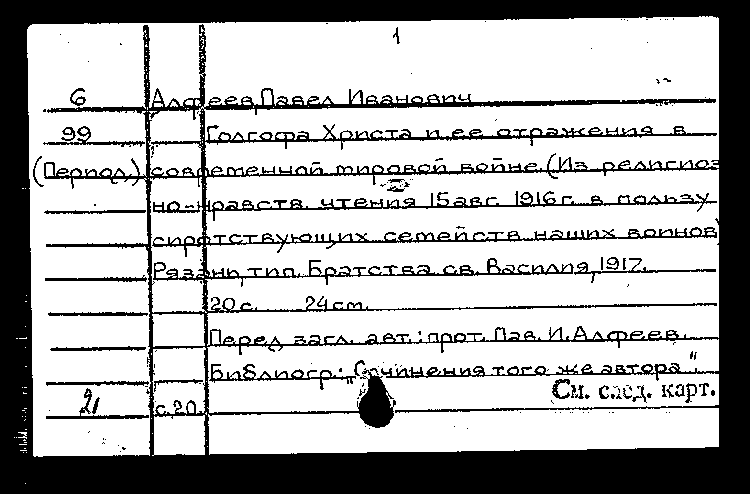 1
6 Алфеев, Павел Иванович
99 Голгофа Христа и ее отражения в
(Период.) современной мировой войне. (Из религиоз
но-нравств. чтения 15 авг. 1916 г. в пользу
сиротствующих семейств наших воинов)
Рязань, тип. Братства св. Василия, 1917.
20 с. 24 см.
Перед загл. авт.: прот. Пав. И. Алфеев.
Библиогр.: „Сочинения того же автора":
21 с. 20.
См. след. карт.